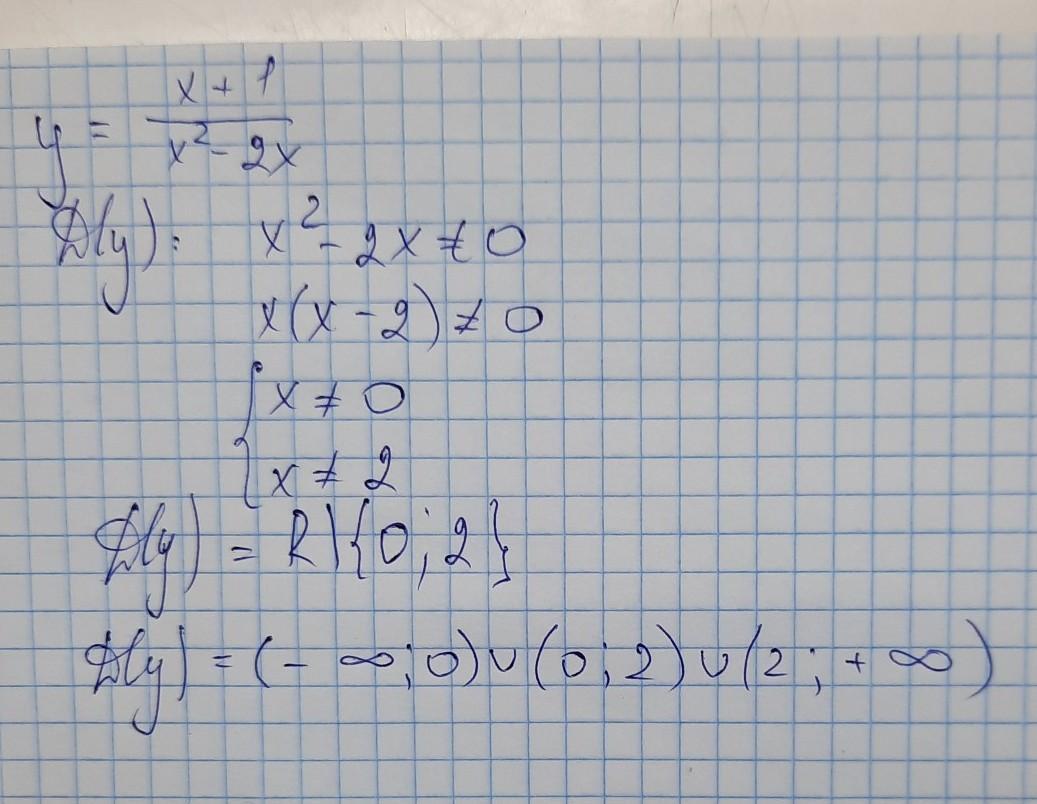 y = \frac{x + 1}{x^2 - 2x}
D(y): x^2 - 2x ≠ 0
x(x - 2) ≠ 0
{ x ≠ 0
x ≠ 2
D(y) = R \ {0; 2}
D(y) = (- ∞; 0) ∪ (0; 2) ∪ (2; + ∞)